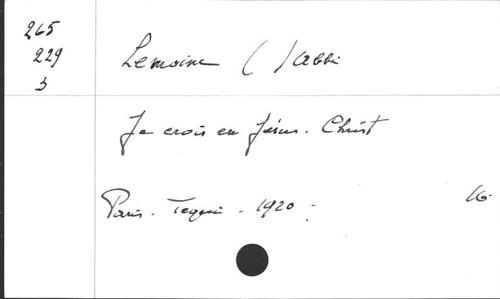 265
229
3
Lemoine ( ) abbé
Je crois en Jésus-Christ
Paris - Tequi - 1920 - 16